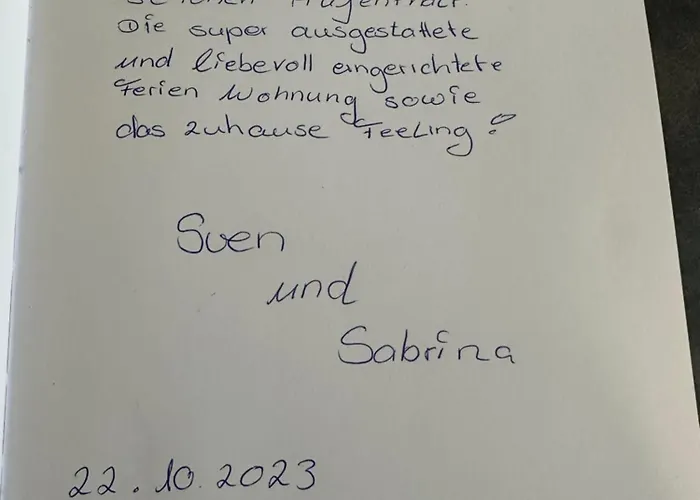 Die super ausgestattete
und liebevoll eingerichtete
Ferien Wohnung sowie
das zuhause Feeling!
Sven
und
Sabrina
22.10.2023